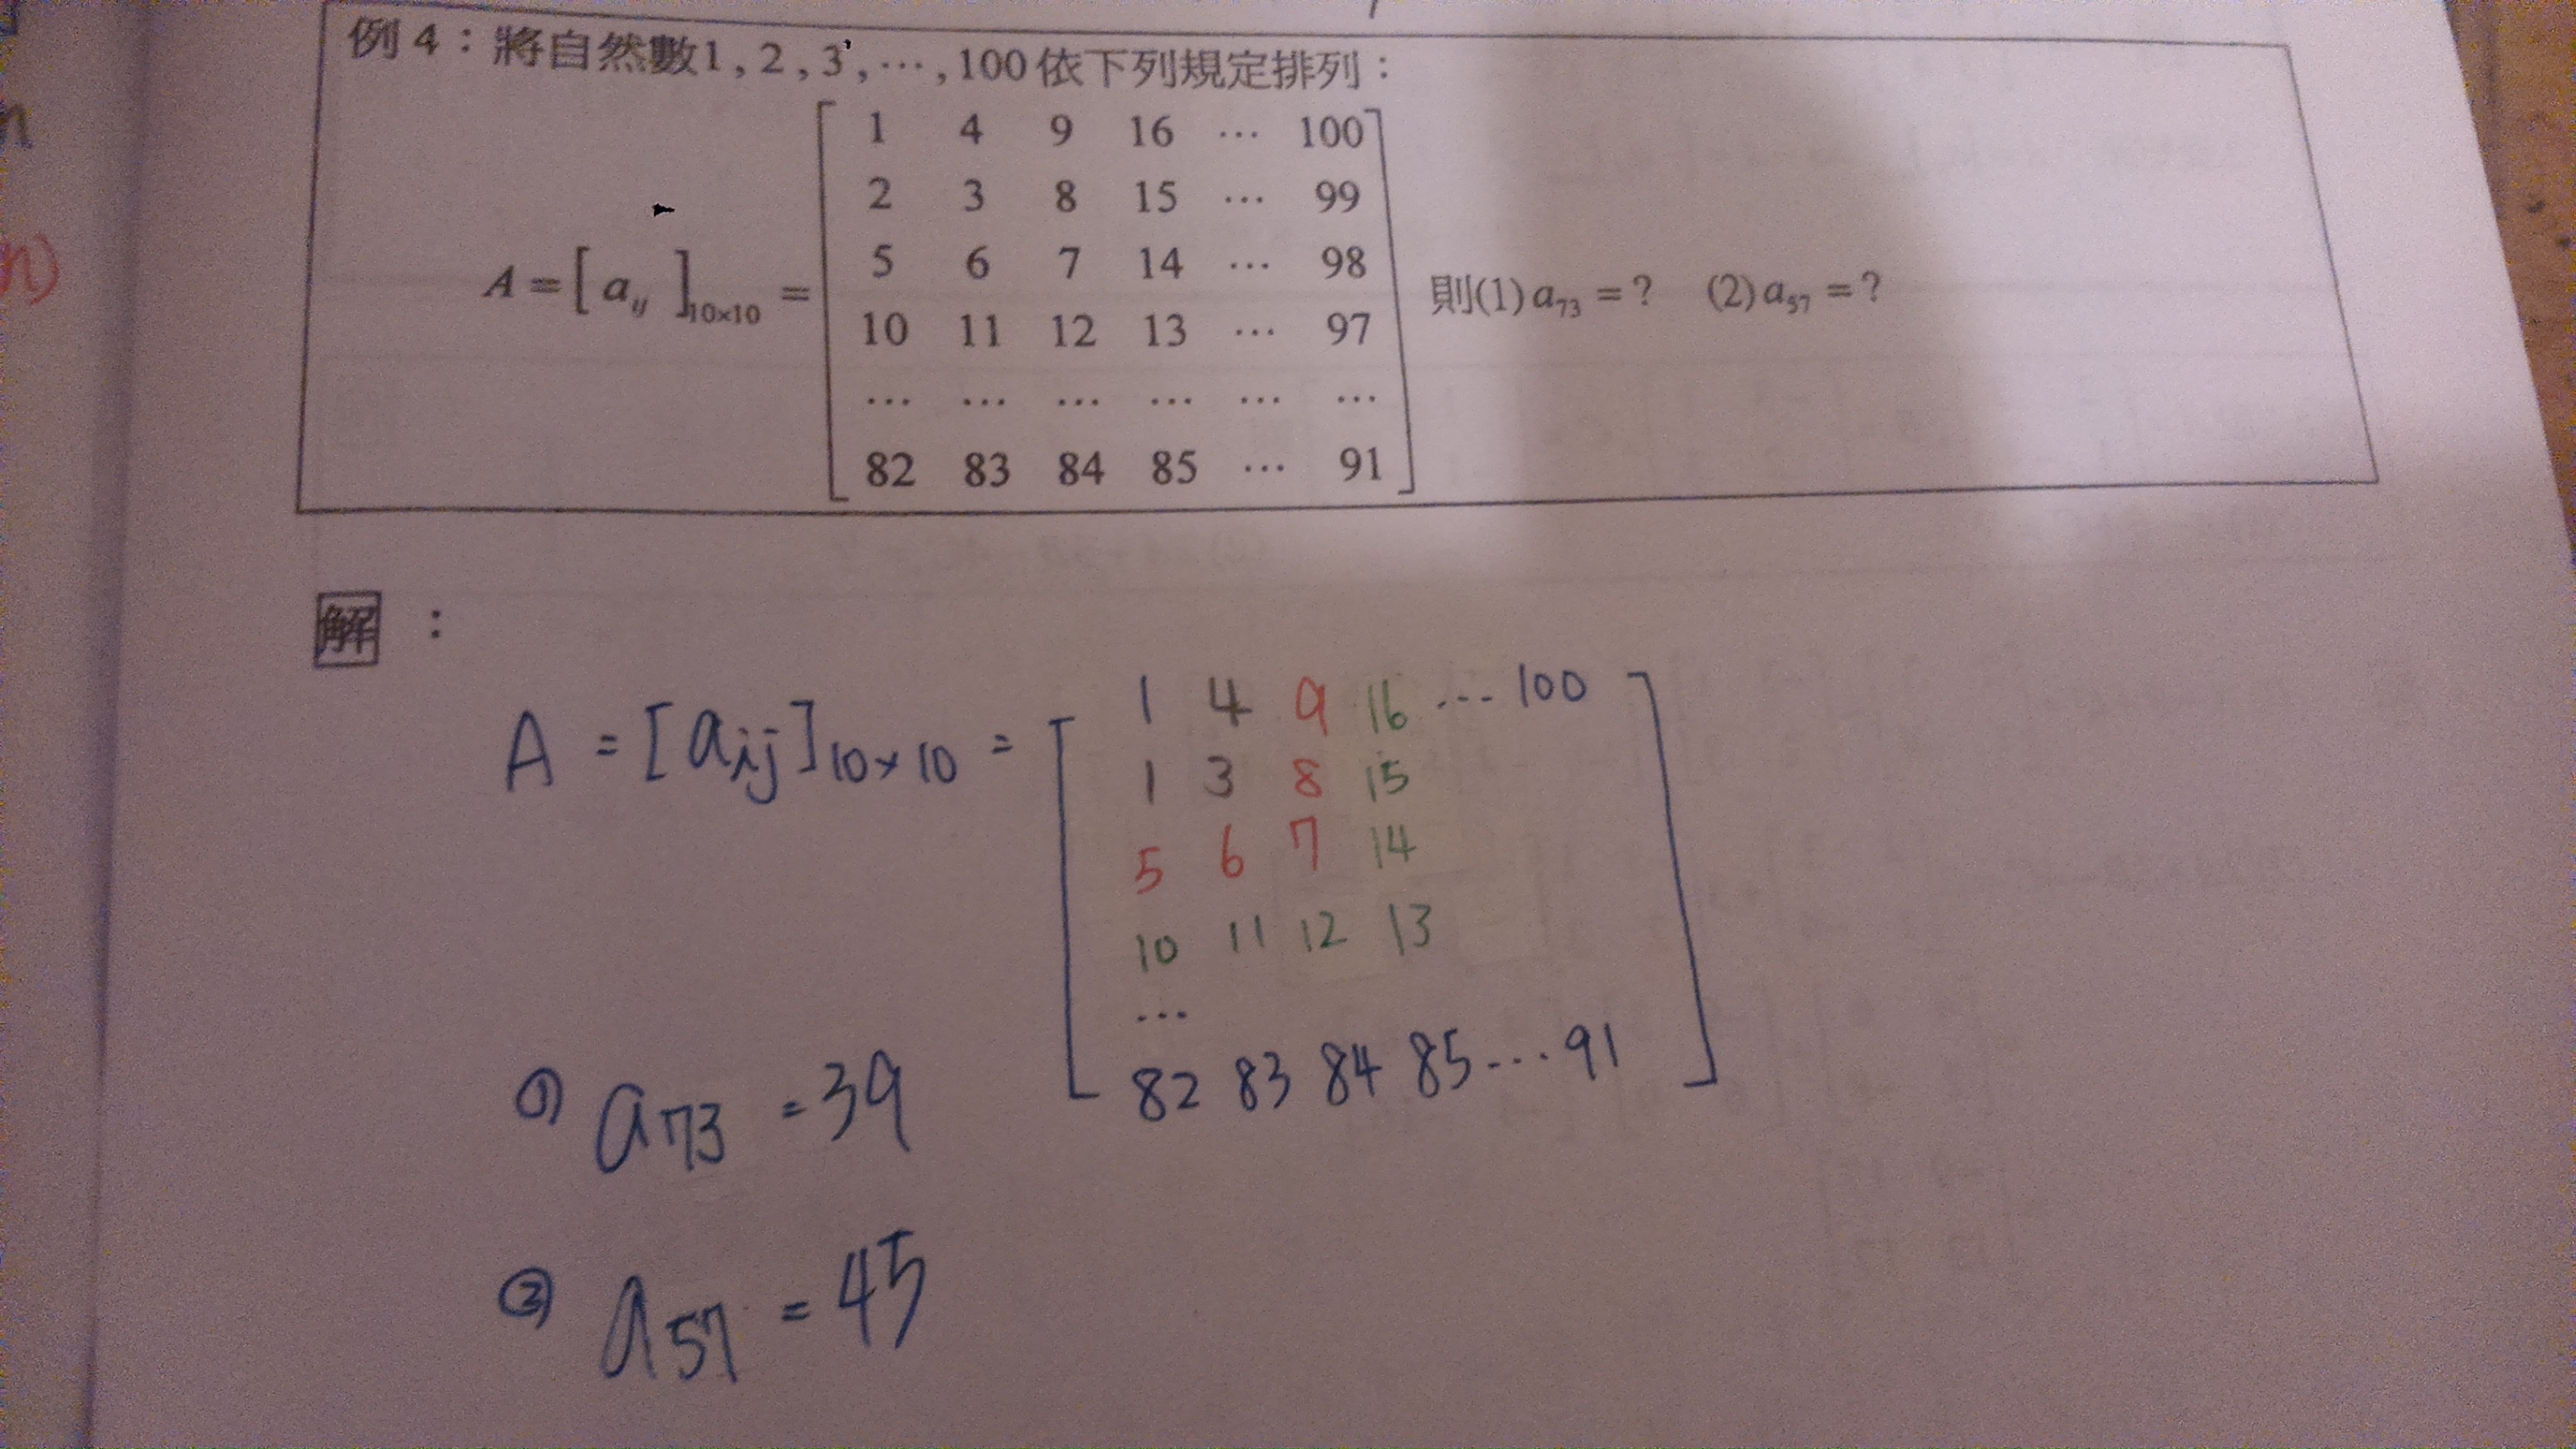 例 4：將自然數1 , 2 , 3 , ⋯ , 100 依下列規定排列：
1 4 9 16 ⋯ 100
2 3 8 15 ⋯ 99
5 6 7 14 ⋯ 98
A = [ aij ]10×10 =
10 11 12 13 ⋯ 97
⋯ ⋯ ⋯ ⋯ ⋯ ⋯
82 83 84 85 ⋯ 91
則(1) a73 = ? (2) a57 = ?
n
n)
解：
A = [aij]10×10 =
1 4 9 16 ⋯ 100
1 3 8 15
5 6 7 14
10 11 12 13
⋯
82 83 84 85 ⋯ 91
① a73 = 39
② a57 = 45